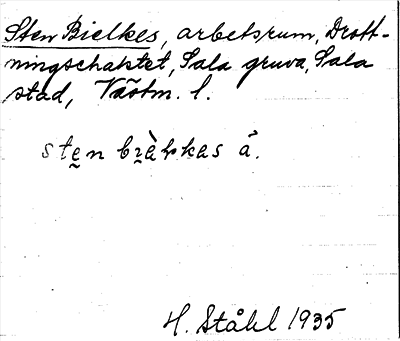 Sten Bielkes, arbetsrum, Drott-
ningschaktet, Sala gruva, Sala
stad, Västm. l.
H. Ståhl 1935